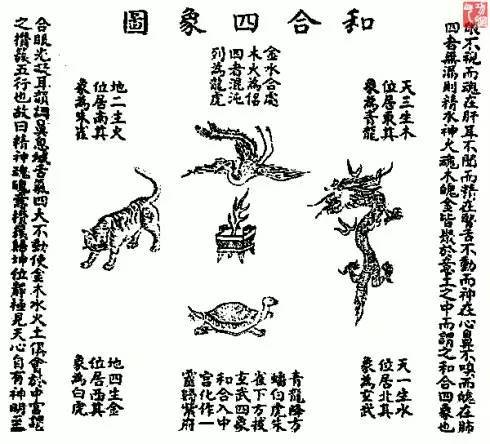 和合四象圖
眼不視而魂在肝耳不聞而精在腎舌不動而神在心鼻不嗅而魄在肺
四者無漏則精水神火魂木魄金皆聚於意土之中而謂之和合四象也
天三生木
位居東其
象為青龍
金水合處
木火為侶
四者混沌
列為龍虎
地二生火
位居南其
象為朱雀
天一生水
位居北其
象為玄武
青龍降方
蟠白虎朱
雀下方被
玄武四象
和合入中
宮化作一
靈歸紫府
地四生金
位居西其
象為白虎
含眼光凝耳韻調鼻息緘舌氣四大不動使金木水火土俱會於中宮謂
之攢簇五行也故曰精神魂魄意攢簇歸坤位靜極見天心自有神明至